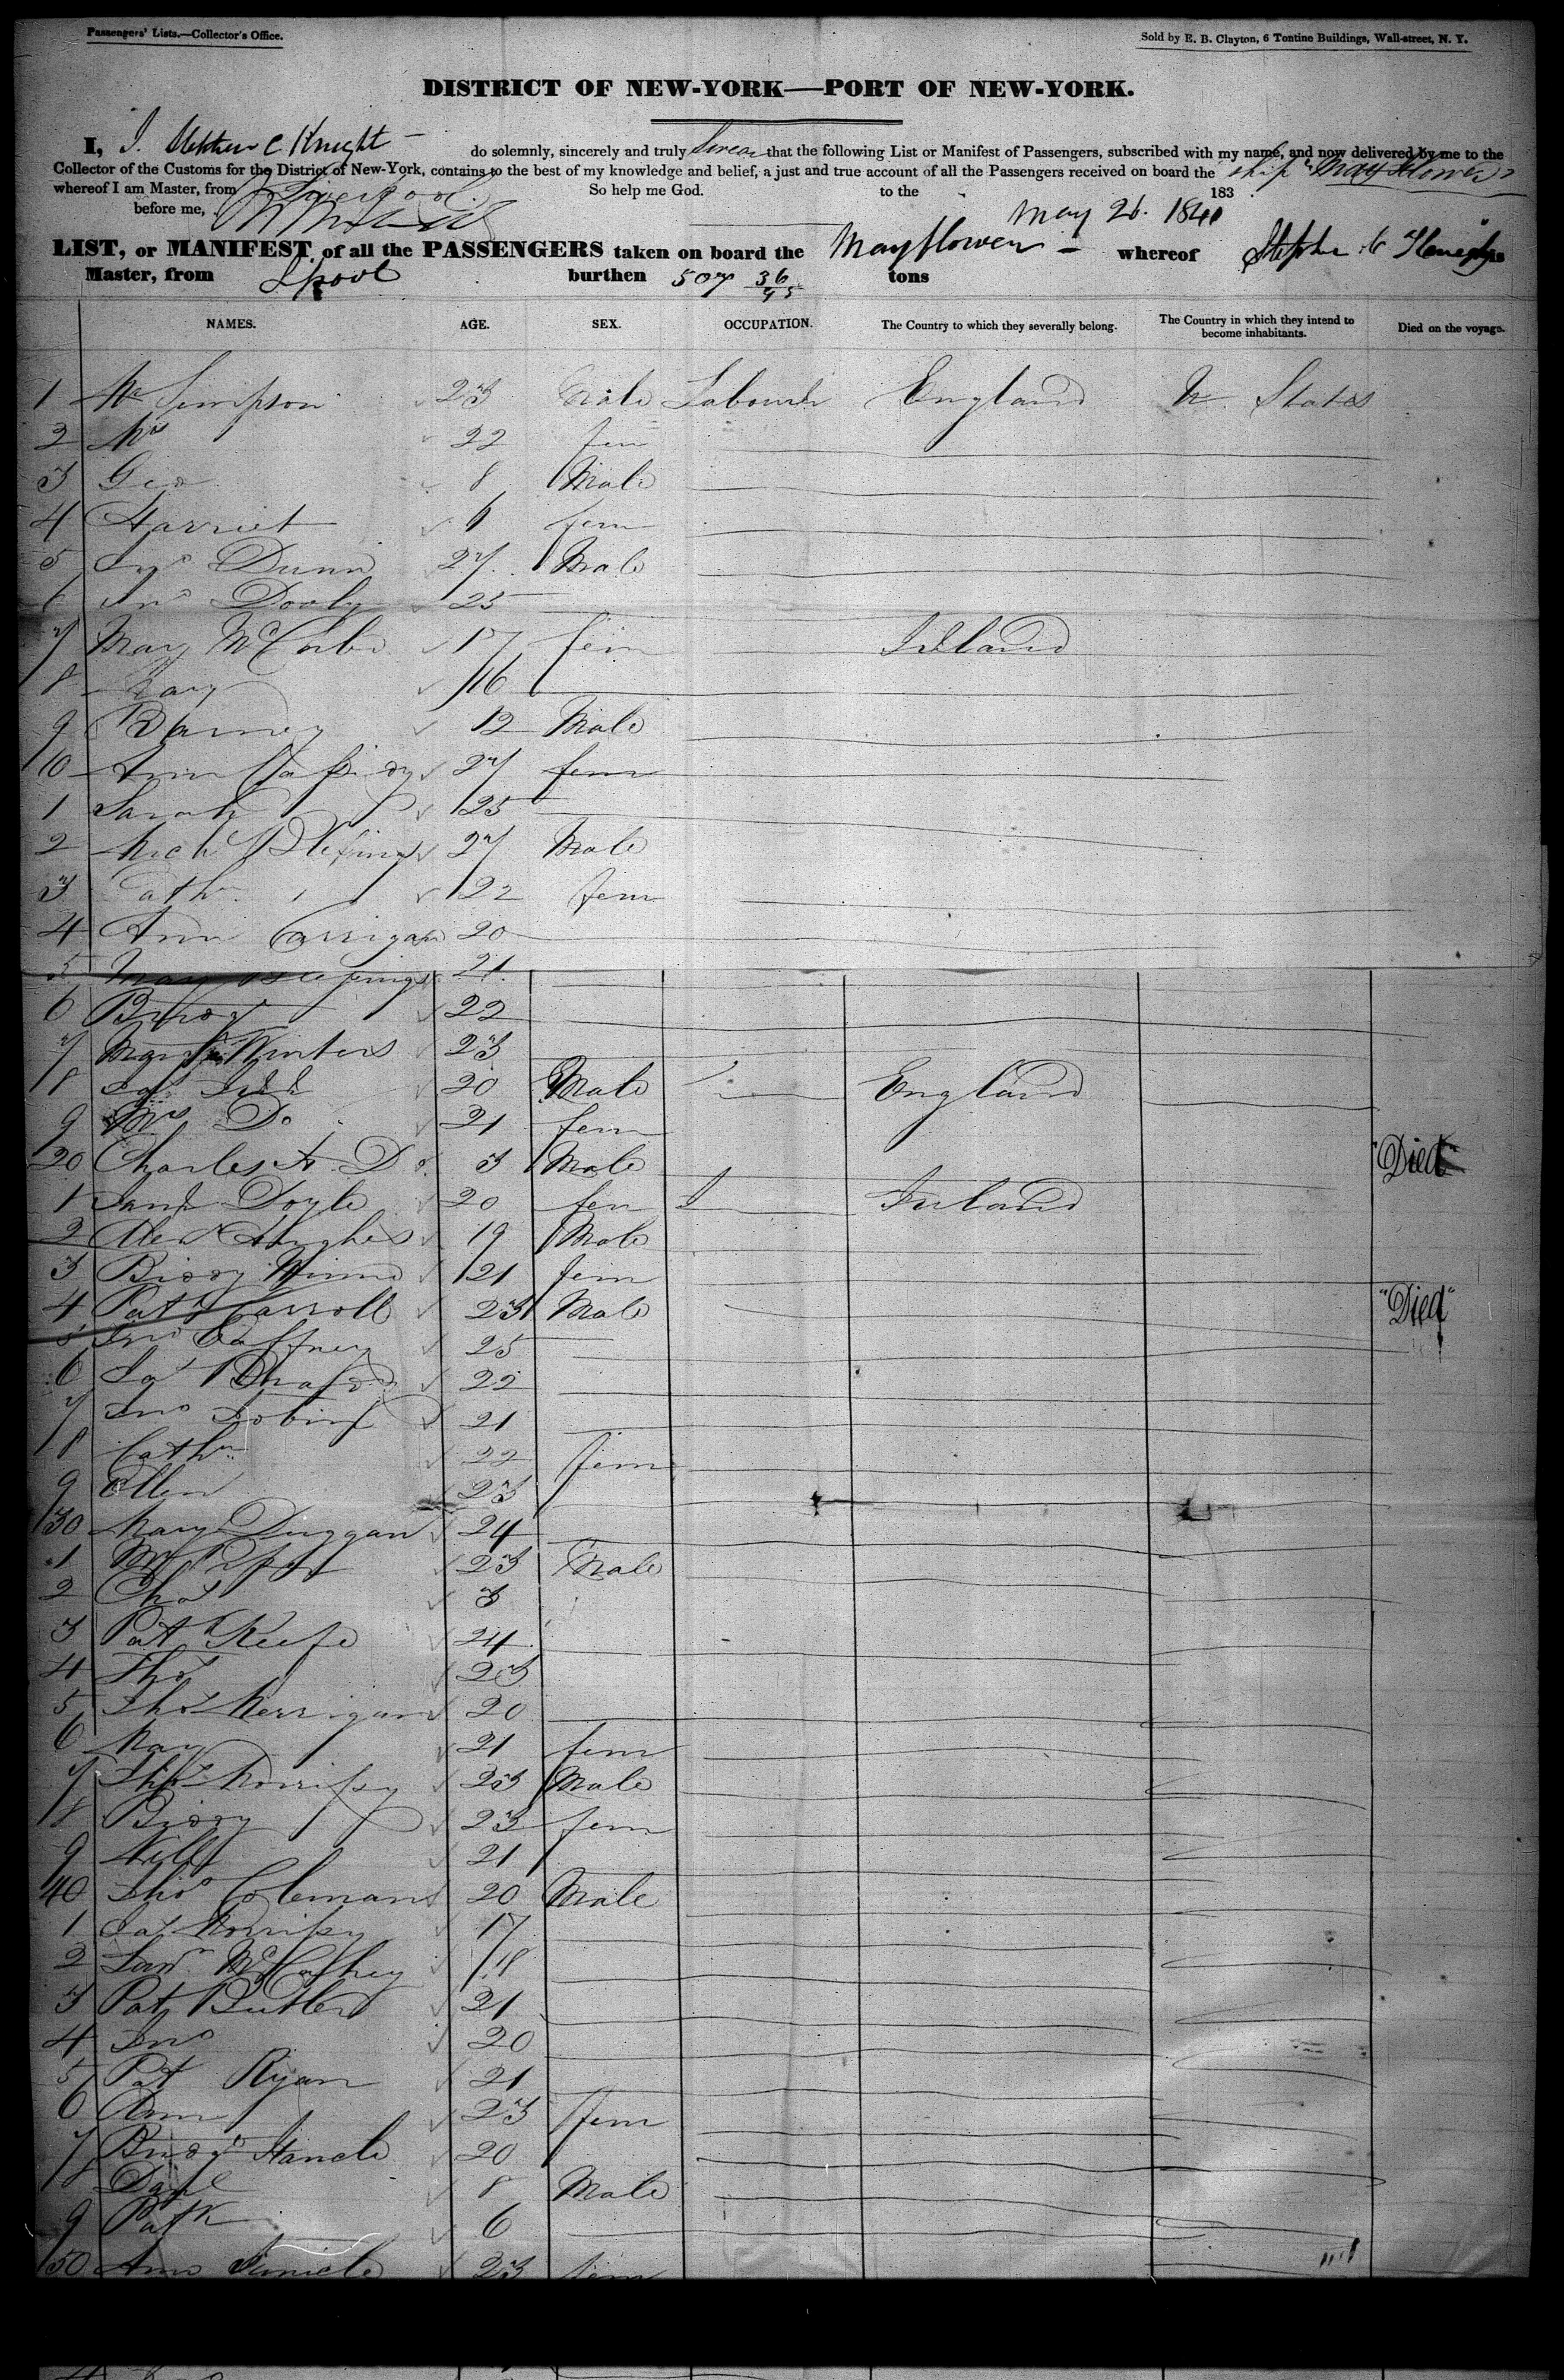 Passengers' Lists.—Collector's Office.
Sold by E. B. Clayton, 6 Tontine Buildings, Wall-street, N. Y.
DISTRICT OF NEW-YORK—PORT OF NEW-YORK.
I, I. Stephen C Knight do solemnly, sincerely and truly Swear that the following List or Manifest of Passengers, subscribed with my name, and now delivered by me to the
Collector of the Customs for the District of New-York, contains to the best of my knowledge and belief, a just and true account of all the Passengers received on board the ship "Mayflower"
whereof I am Master, from Liverpool So help me God. to the 183
before me, May 26. 1841
LIST, or MANIFEST of all the PASSENGERS taken on board the Mayflower whereof Stephen C is
Master, from Lpool burthen 507 36/95 tons
NAMES. AGE. SEX. OCCUPATION. The Country to which they severally belong. The Country in which they intend to become inhabitants. Died on the voyage.
1 Simpson 23 Male Labourer England U. States
2 Mrs 22 fem
3 Geo 8 Male
4 Harriet 6 fem
5 Dunn 27 Male
6 Jno Dooly 25
7 Mary 17 fem Ireland
8 Mary 16
9 Barney 12 Male
10 Ann Cassidy 27 fem
1 Sarah 25
2 Mich 27 Male
3 Cathn 22 fem
4 Ann Carrigan 20
5 Mary 21
6 Bridgt 22
7 Winters 23
8 20 Male England
9 Mrs Do 21 fem
20 Charles A. Do 3 Male Died
1 Doyle 20 fem Ireland
2 Hughes 19 Male
3 Biddy 21 fem
4 Patk Carroll 23 Male "Died"
5 Jno Caffney 25
6 Jas 22
7 Jno 21
8 Cathn 22 fem
9 Ellen 23
30 Mary Duggan 24
1 23 Male
2 Chas 3
3 Patk Keefe 24
4 Thos 23
5 Thos Kerrigan 20
6 Mary 21 fem
7 Thos Morrissy 23 Male
8 Biddy 23 fem
9 21
40 Thos Coleman 20 Male
1 Jas Morrissy 17
2 18
3 Pat Butler 21
4 Jno 20
5 Pat Ryan 21
6 Ann 23 fem
7 Bridgt 20
8 Danl 8 Male
9 Patk 6
50 Ann 23 fem